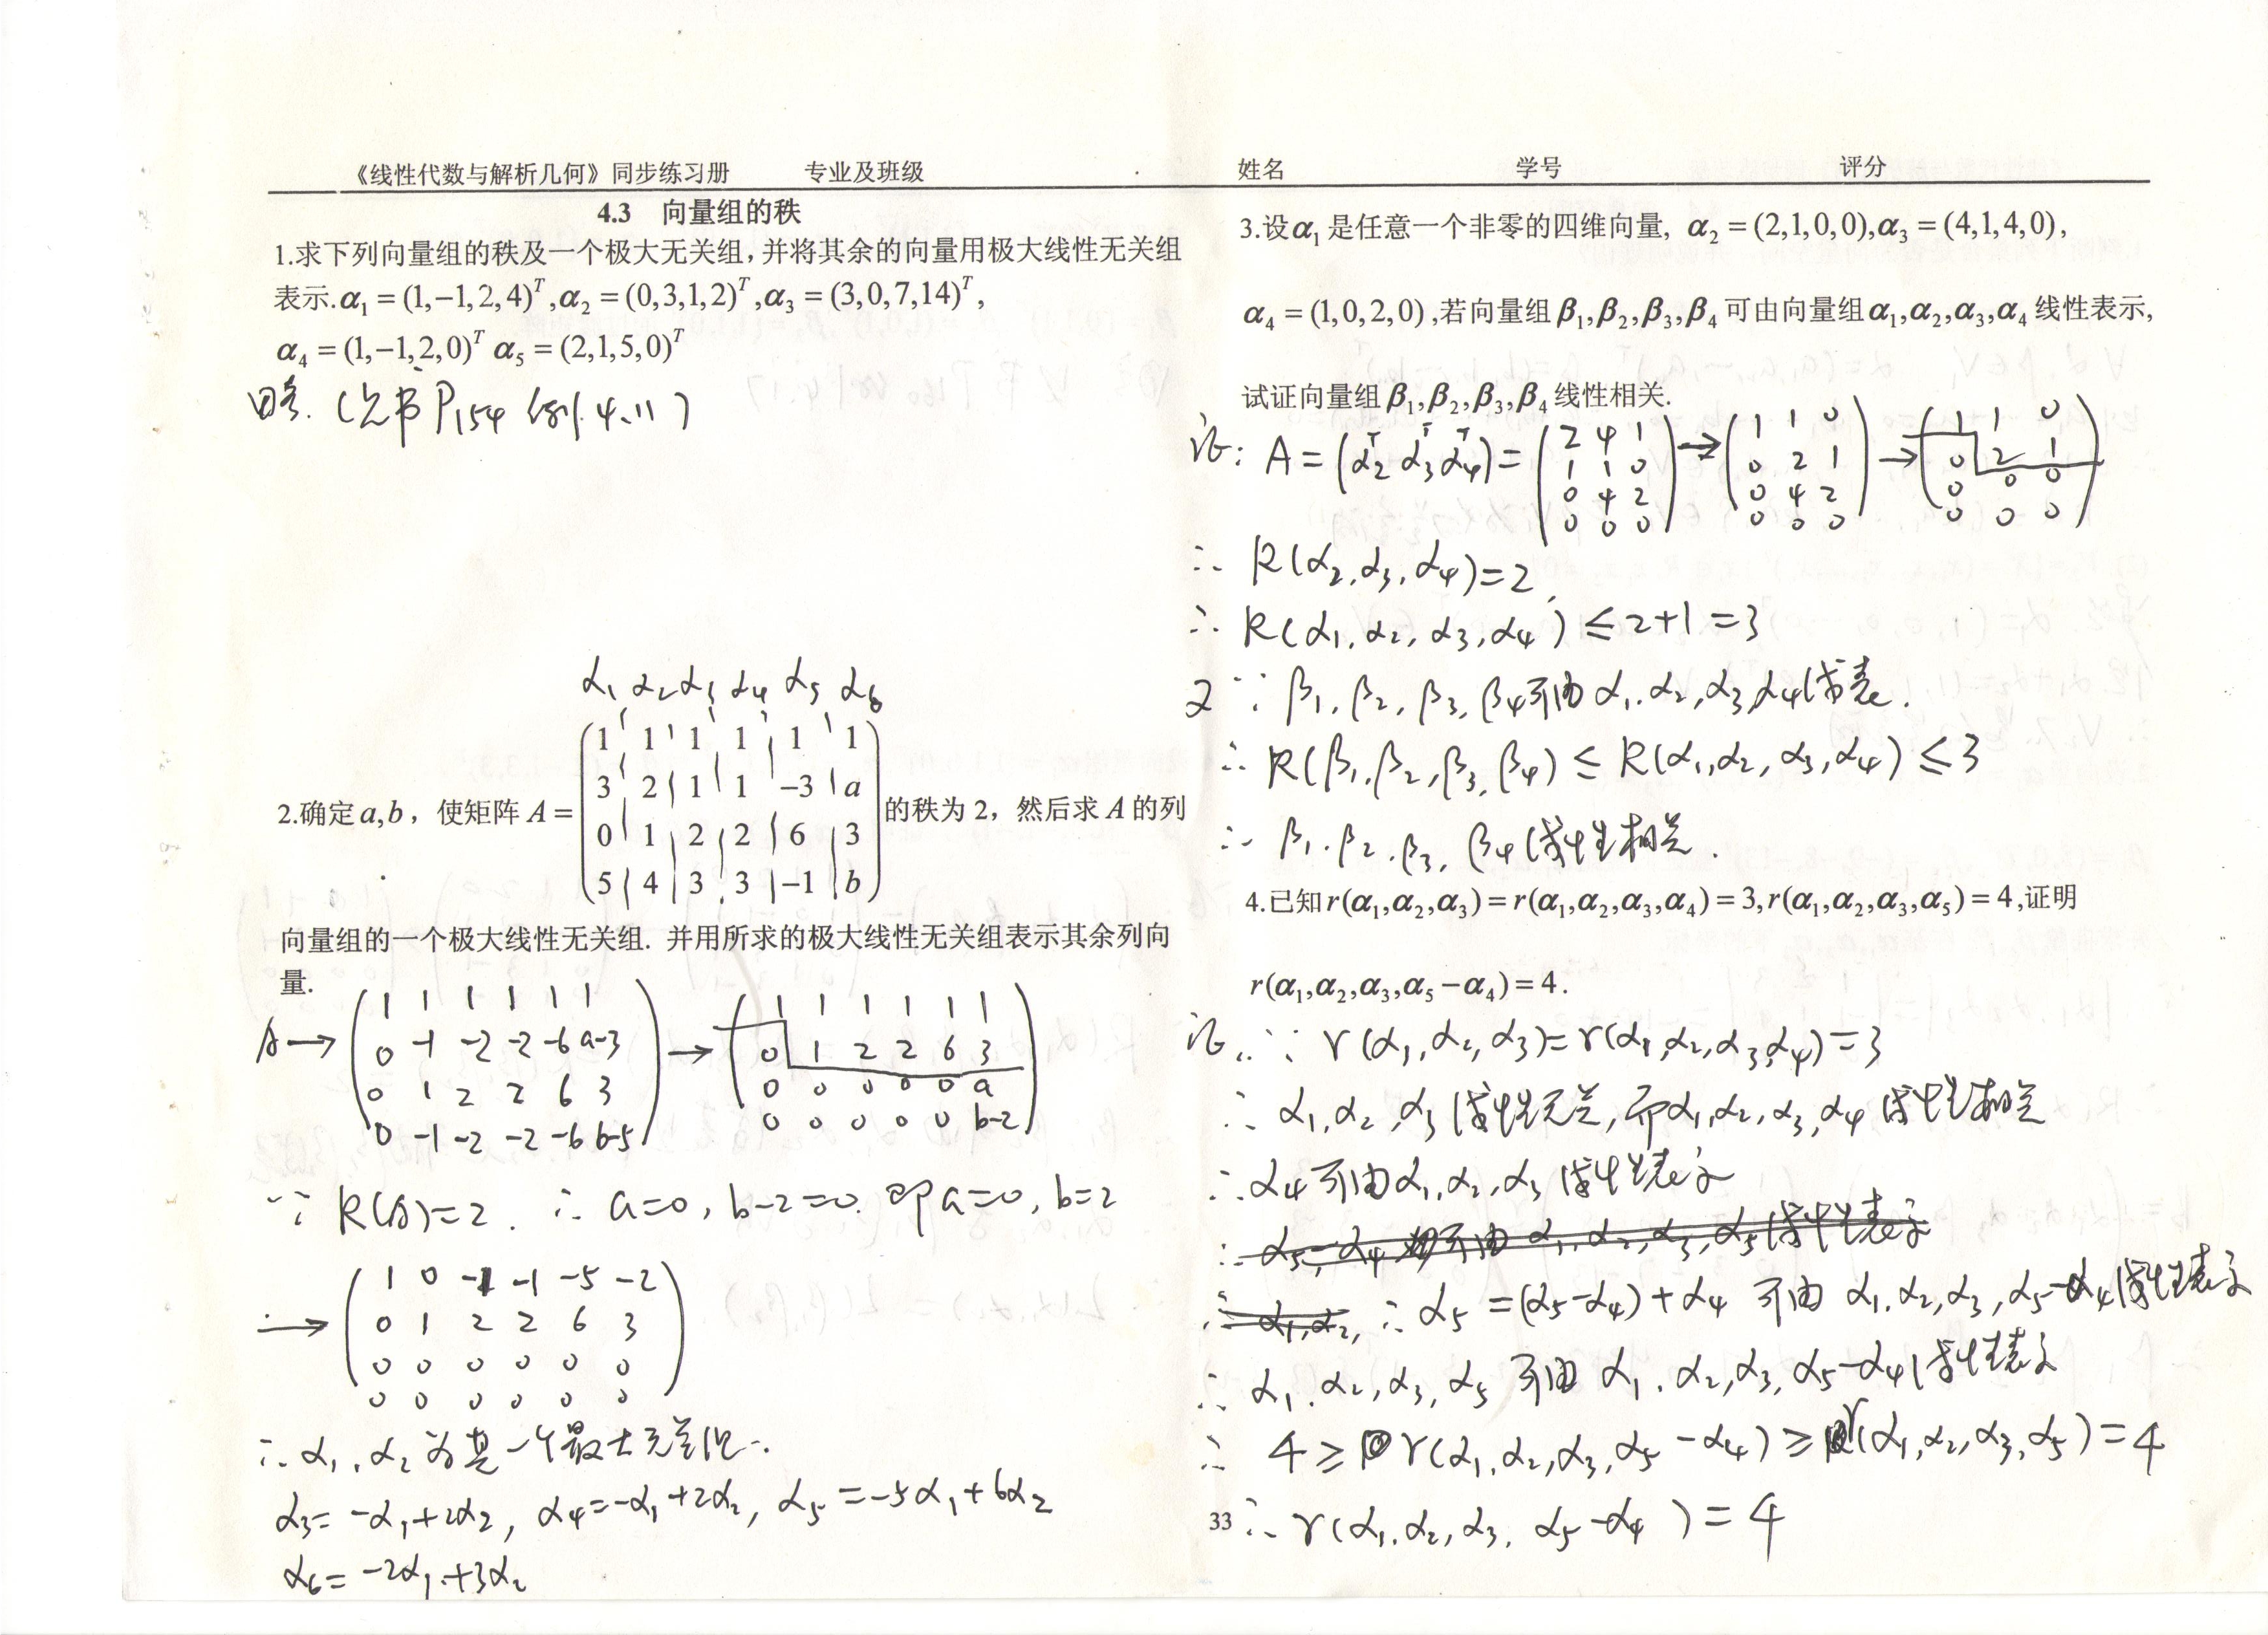 《线性代数与解析几何》同步练习册 专业及班级 姓名 学号 评分
4.3 向量组的秩
1.求下列向量组的秩及一个极大无关组,并将其余的向量用极大线性无关组
表示.α₁ = (1,−1,2,4)ᵀ,α₂ = (0,3,1,2)ᵀ,α₃ = (3,0,7,14)ᵀ,
α₄ = (1,−1,2,0)ᵀ α₅ = (2,1,5,0)ᵀ
略. (见书P154 例4.11)
α₁ α₂ α₃ α₄ α₅ α₆
1 1 1 1 1 1
3 2 1 1 −3 a
2.确定a,b，使矩阵 A = 的秩为 2，然后求 A 的列
0 1 2 2 6 3
5 4 3 3 −1 b
向量组的一个极大线性无关组. 并用所求的极大线性无关组表示其余列向
量.
A → (1 1 1 1 1 1; 0 -1 -2 -2 -6 a-3; 0 1 2 2 6 3; 0 -1 -2 -2 -6 b-5) → (1 1 1 1 1 1; 0 1 2 2 6 3; 0 0 0 0 0 a; 0 0 0 0 0 b-2)
∵ R(A)=2. ∴ a=0, b-2=0. 即a=0, b=2
→ (1 0 -1 -1 -5 -2; 0 1 2 2 6 3; 0 0 0 0 0 0; 0 0 0 0 0 0)
∴ α₁, α₂ 为其一个最大无关组.
α₃= -α₁+2α₂, α₄=-α₁+2α₂, α₅=-5α₁+6α₂
α₆= -2α₁+3α₂
3.设α₁是任意一个非零的四维向量, α₂ = (2,1,0,0),α₃ = (4,1,4,0),
α₄ = (1,0,2,0),若向量组β₁,β₂,β₃,β₄可由向量组α₁,α₂,α₃,α₄线性表示,
试证向量组β₁,β₂,β₃,β₄线性相关.
证: A = (α₂ᵀ α₃ᵀ α₄ᵀ) = (2 4 1; 1 1 0; 0 4 2; 0 0 0) → (1 1 0; 0 2 1; 0 4 2; 0 0 0) → (1 1 0; 0 2 1; 0 0 0; 0 0 0)
∴ R(α₂,α₃,α₄)=2
∴ R(α₁,α₂,α₃,α₄) ≤ 2+1=3
又∵ β₁,β₂,β₃,β₄可由α₁,α₂,α₃,α₄线表.
∴ R(β₁,β₂,β₃,β₄) ≤ R(α₁,α₂,α₃,α₄) ≤ 3
∴ β₁,β₂,β₃,β₄线性相关.
4.已知r(α₁,α₂,α₃) = r(α₁,α₂,α₃,α₄) = 3,r(α₁,α₂,α₃,α₅) = 4,证明
r(α₁,α₂,α₃,α₅ −α₄) = 4.
证. ∵ r(α₁,α₂,α₃)=r(α₁,α₂,α₃,α₄)=3
∴ α₁,α₂,α₃线性无关,而α₁,α₂,α₃,α₄线性相关
∴ α₄可由α₁,α₂,α₃线性表示
∴ α₅-α₄ 可由α₁,α₂,α₃,α₅线性表示
∴ α₁,α₂, ∴ α₅ =(α₅-α₄)+α₄ 可由 α₁,α₂,α₃,α₅-α₄线性表示
∴ α₁,α₂,α₃,α₅ 可由 α₁,α₂,α₃,α₅-α₄线性表示
∴ 4 ≥ r(α₁,α₂,α₃,α₅-α₄) ≥ r(α₁,α₂,α₃,α₅)=4
33 ∴ r(α₁,α₂,α₃,α₅-α₄)=4